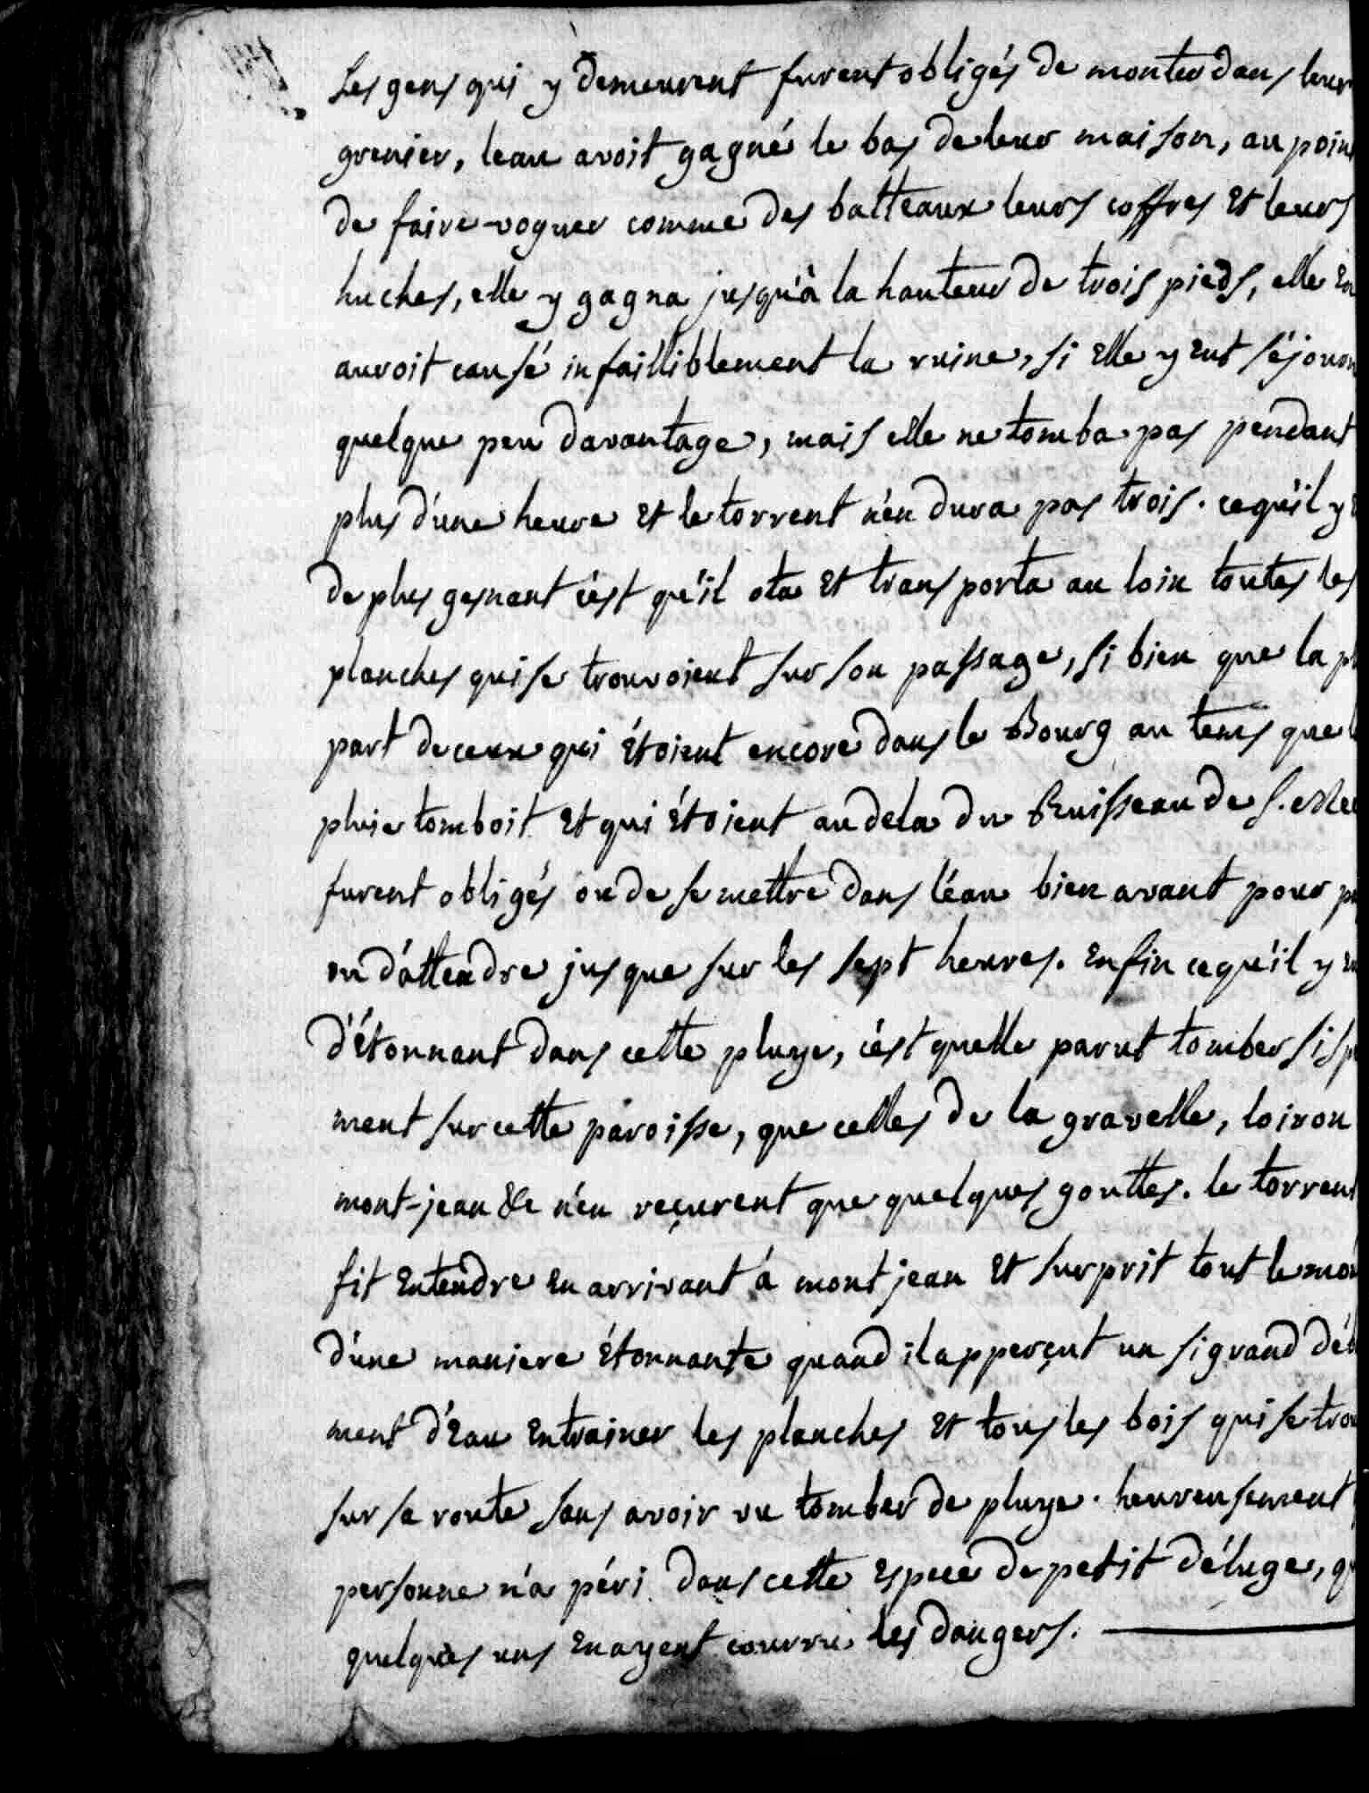 Les gens qui y demeurent furent obligés de monter dans leur
grenier, leau avoit gagné le bas de leur maison, au poin
de faire voguer comme des batteaux leurs coffres et leurs
huches, elle y gagna jusqu'à la hauteur de trois pieds, elle en
auroit causé infailliblement la ruine, si elle y eut séjour
quelque peu davantage, mais elle ne tomba pas pendant
plus d'une heure et le torrent n'en dura pas trois. ce qu'il y
de plus gesnant c'est qu'il ota et transporta au loin toutes les
planches qui se trouvoient sur son passage, si bien que la pl
part de ceux qui étoient encore dans le Bourg au tems que l
pluie tomboit et qui étoient au dela du Ruisseau de S.
furent obligés ou de se mettre dans l'éau bien avant pour p
ou d'attendre jusque sur les sept heures. enfin ce qu'il y eu
d'étonnant dans cette pluye, c'est quelle parut tomber si sp
ment sur cette paroisse, que celles de la gravelle, loiron
mont-jean &c n'en reçurent que quelques gouttes. le torrent
fit entendre en arrivant à mont jean et surprit tout le mon
d'une maniere étonnante quand il apperçut un si grand déb
ment d'eau entrainer les planches et tous les bois qui se trou
sur sa route sans avoir vu tomber de pluye. heureusement
personne n'a péri dans cette espece de petit déluge, q
quelques uns en ayent courru les dangers.